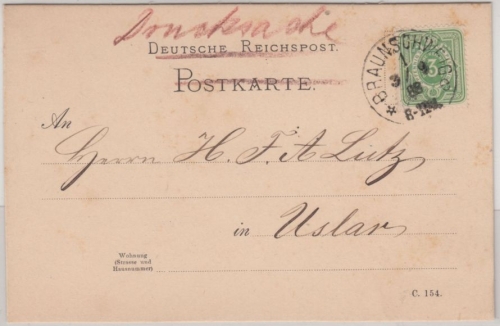 Drucksache
DEUTSCHE REICHSPOST.
POSTKARTE.
BRAUNSCHWEIG
An
Herrn H. F. A Lutz
in Uslar
Wohnung
(Strasse und
Hausnummer)
C. 154.